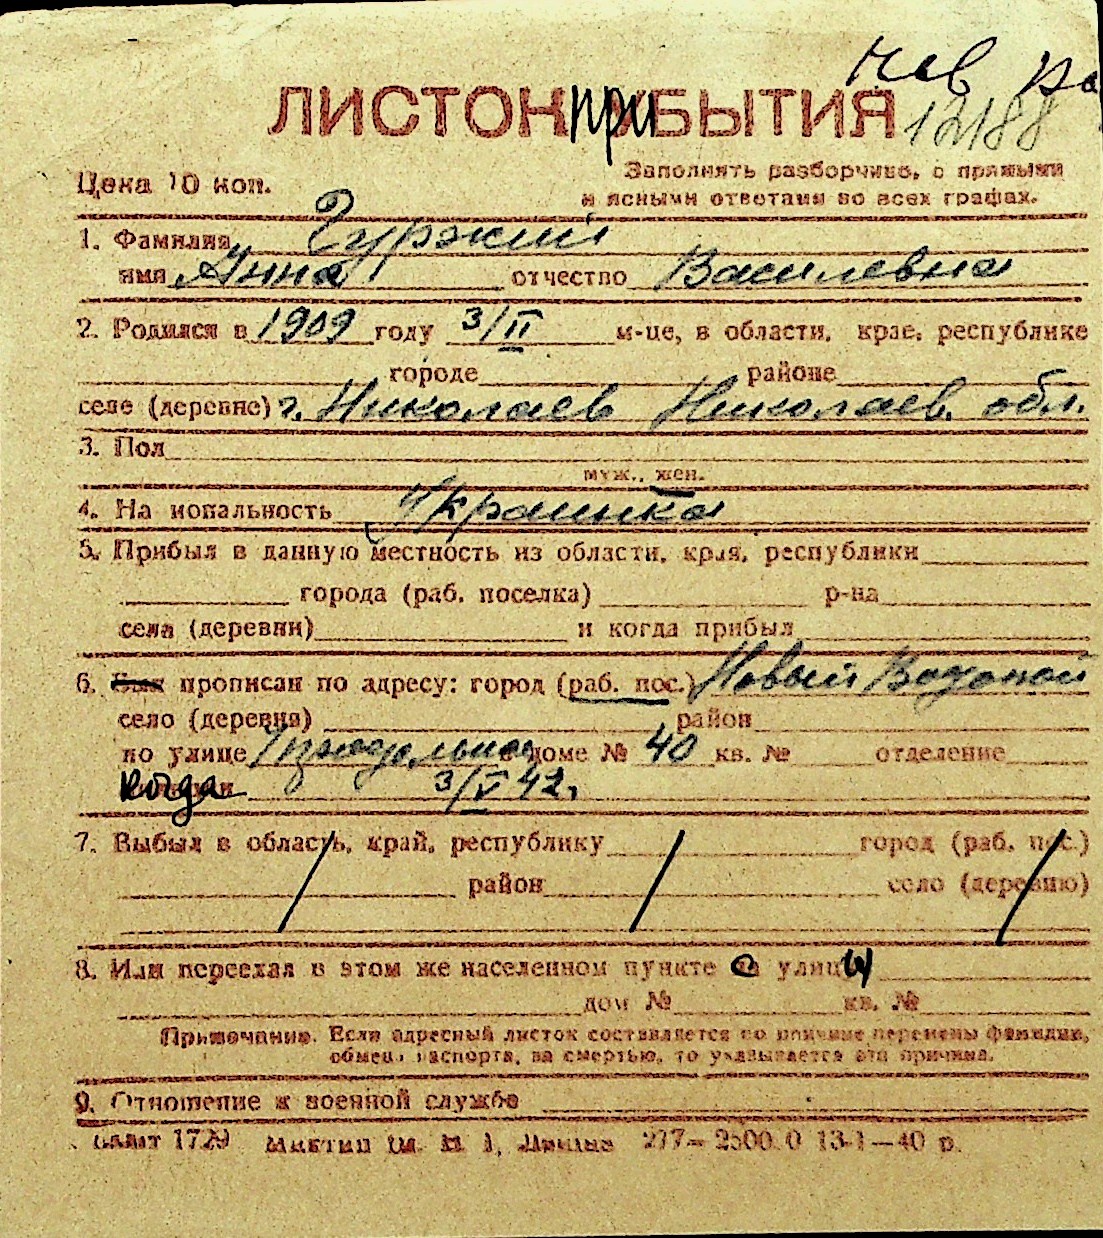 ЛИСТОК ПРИБЫТИЯ
12188
Цена 10 коп.
Заполнять разборчиво, с прямыми
и ясными ответами во всех графах.
1. Фамилия Гурский
имя Анна отчество Василевна
2. Родился в 1909 году 3/II м-це, в области, крае, республике
городе районе
селе (деревне) г. Николаев Николаев. обл.
3. Пол
муж., жен.
4. На иональность Украинка
5. Прибыл в данную местность из области, края, республики
города (раб. поселка) р-на
села (деревни) и когда прибыл
6. Был прописан по адресу: город (раб. пос.) Новый Водопой
село (деревня) район
по улице Продельная в доме № 40 кв. № отделение
когда 3/V 42.
7. Выбыл в область, край, республику город (раб. пос.)
район село (деревню)
8. Или переехал в этом же населенном пункте с улицы
дом № кв. №
Примечание. Если адресный листок составляется по причине перемены фамилии,
обмена паспорта, за смертью, то указывается эта причина.
9. Отношение к военной службе
1729 277— 2500.0 13-I—40 р.